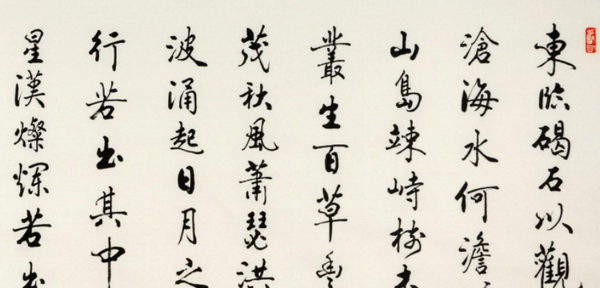 東臨碣石以觀
滄海水何澹
山島竦峙樹木
叢生百草豐
茂秋風蕭瑟洪
波涌起日月之
行若出其中
星漢燦爛若出